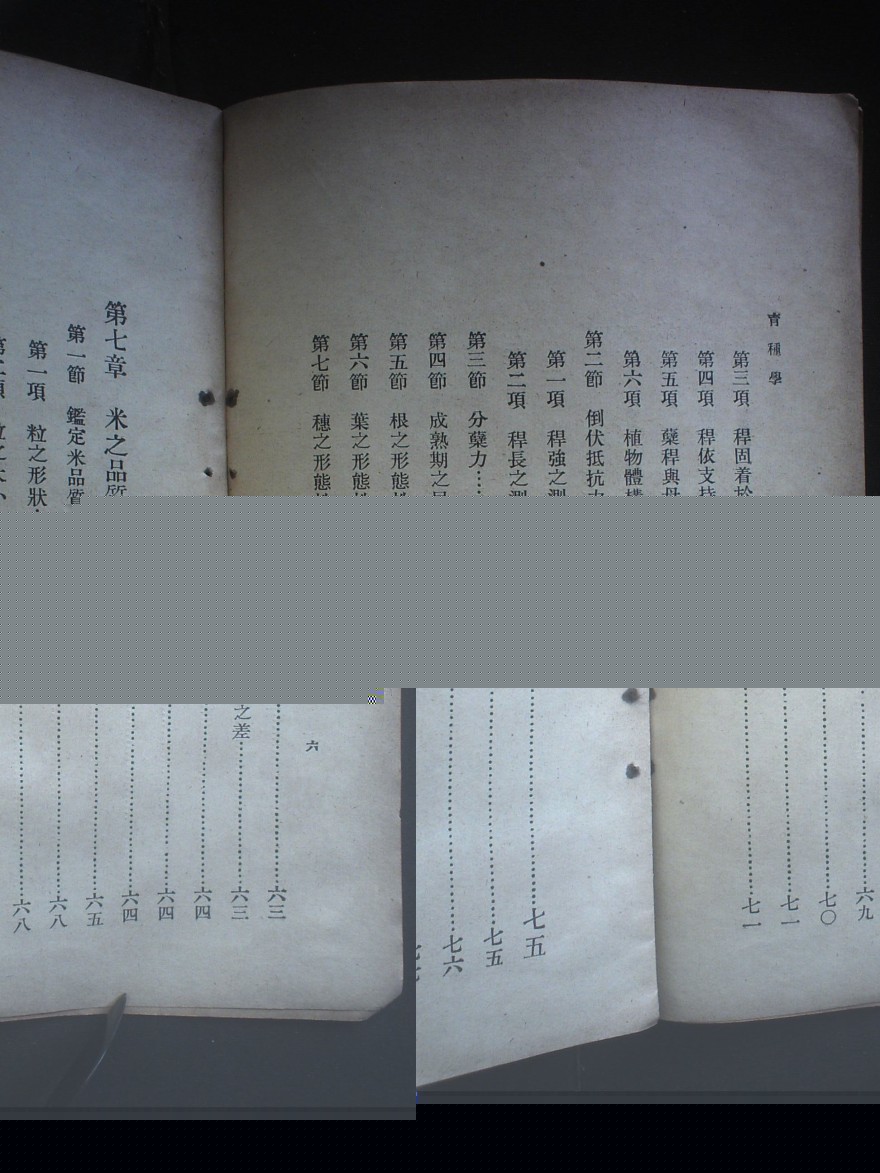 育種學
第三項 稈固着於
第四項 稈依支持
第五項 蘖稈與母
第六項 植物體構
第二節 倒伏抵抗
第一項 稈強之測
第二項 稈長之測
第三節 分蘖力……
第四節 成熟期之
第五節 根之形態
第六節 葉之形態
第七節 穗之形態
第七章 米之品質
第一節 鑑定米品質
第一項 粒之形狀
六
……六三
之差……六三
……六四
……六四
……六四
……六五
……六八
……六八
……六九
……七〇
……七一
……七一
……七五
……七五
……七六